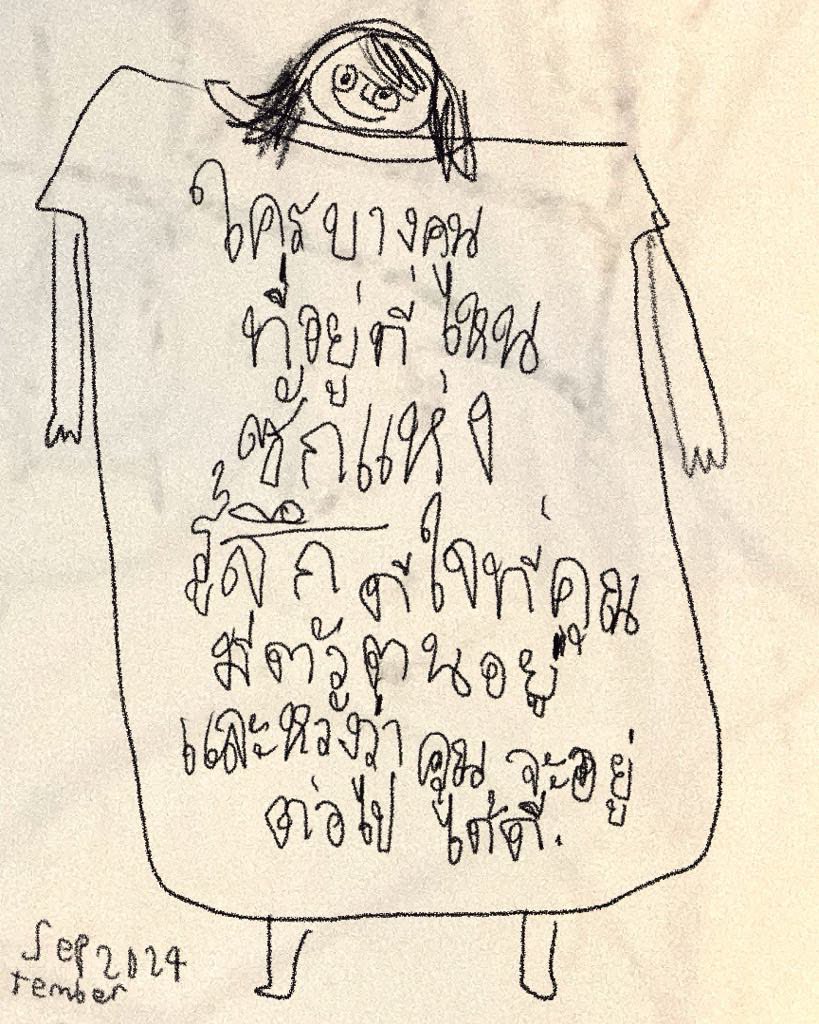 ใครบางคน
ที่อยู่ที่ไหน
ซักแห่ง
รู้สึกดีใจที่คุณ
มีตัวตนอยู่
และหวังว่าคุณจะอยู่
ต่อไปได้ดี.
Sep 2024
tember